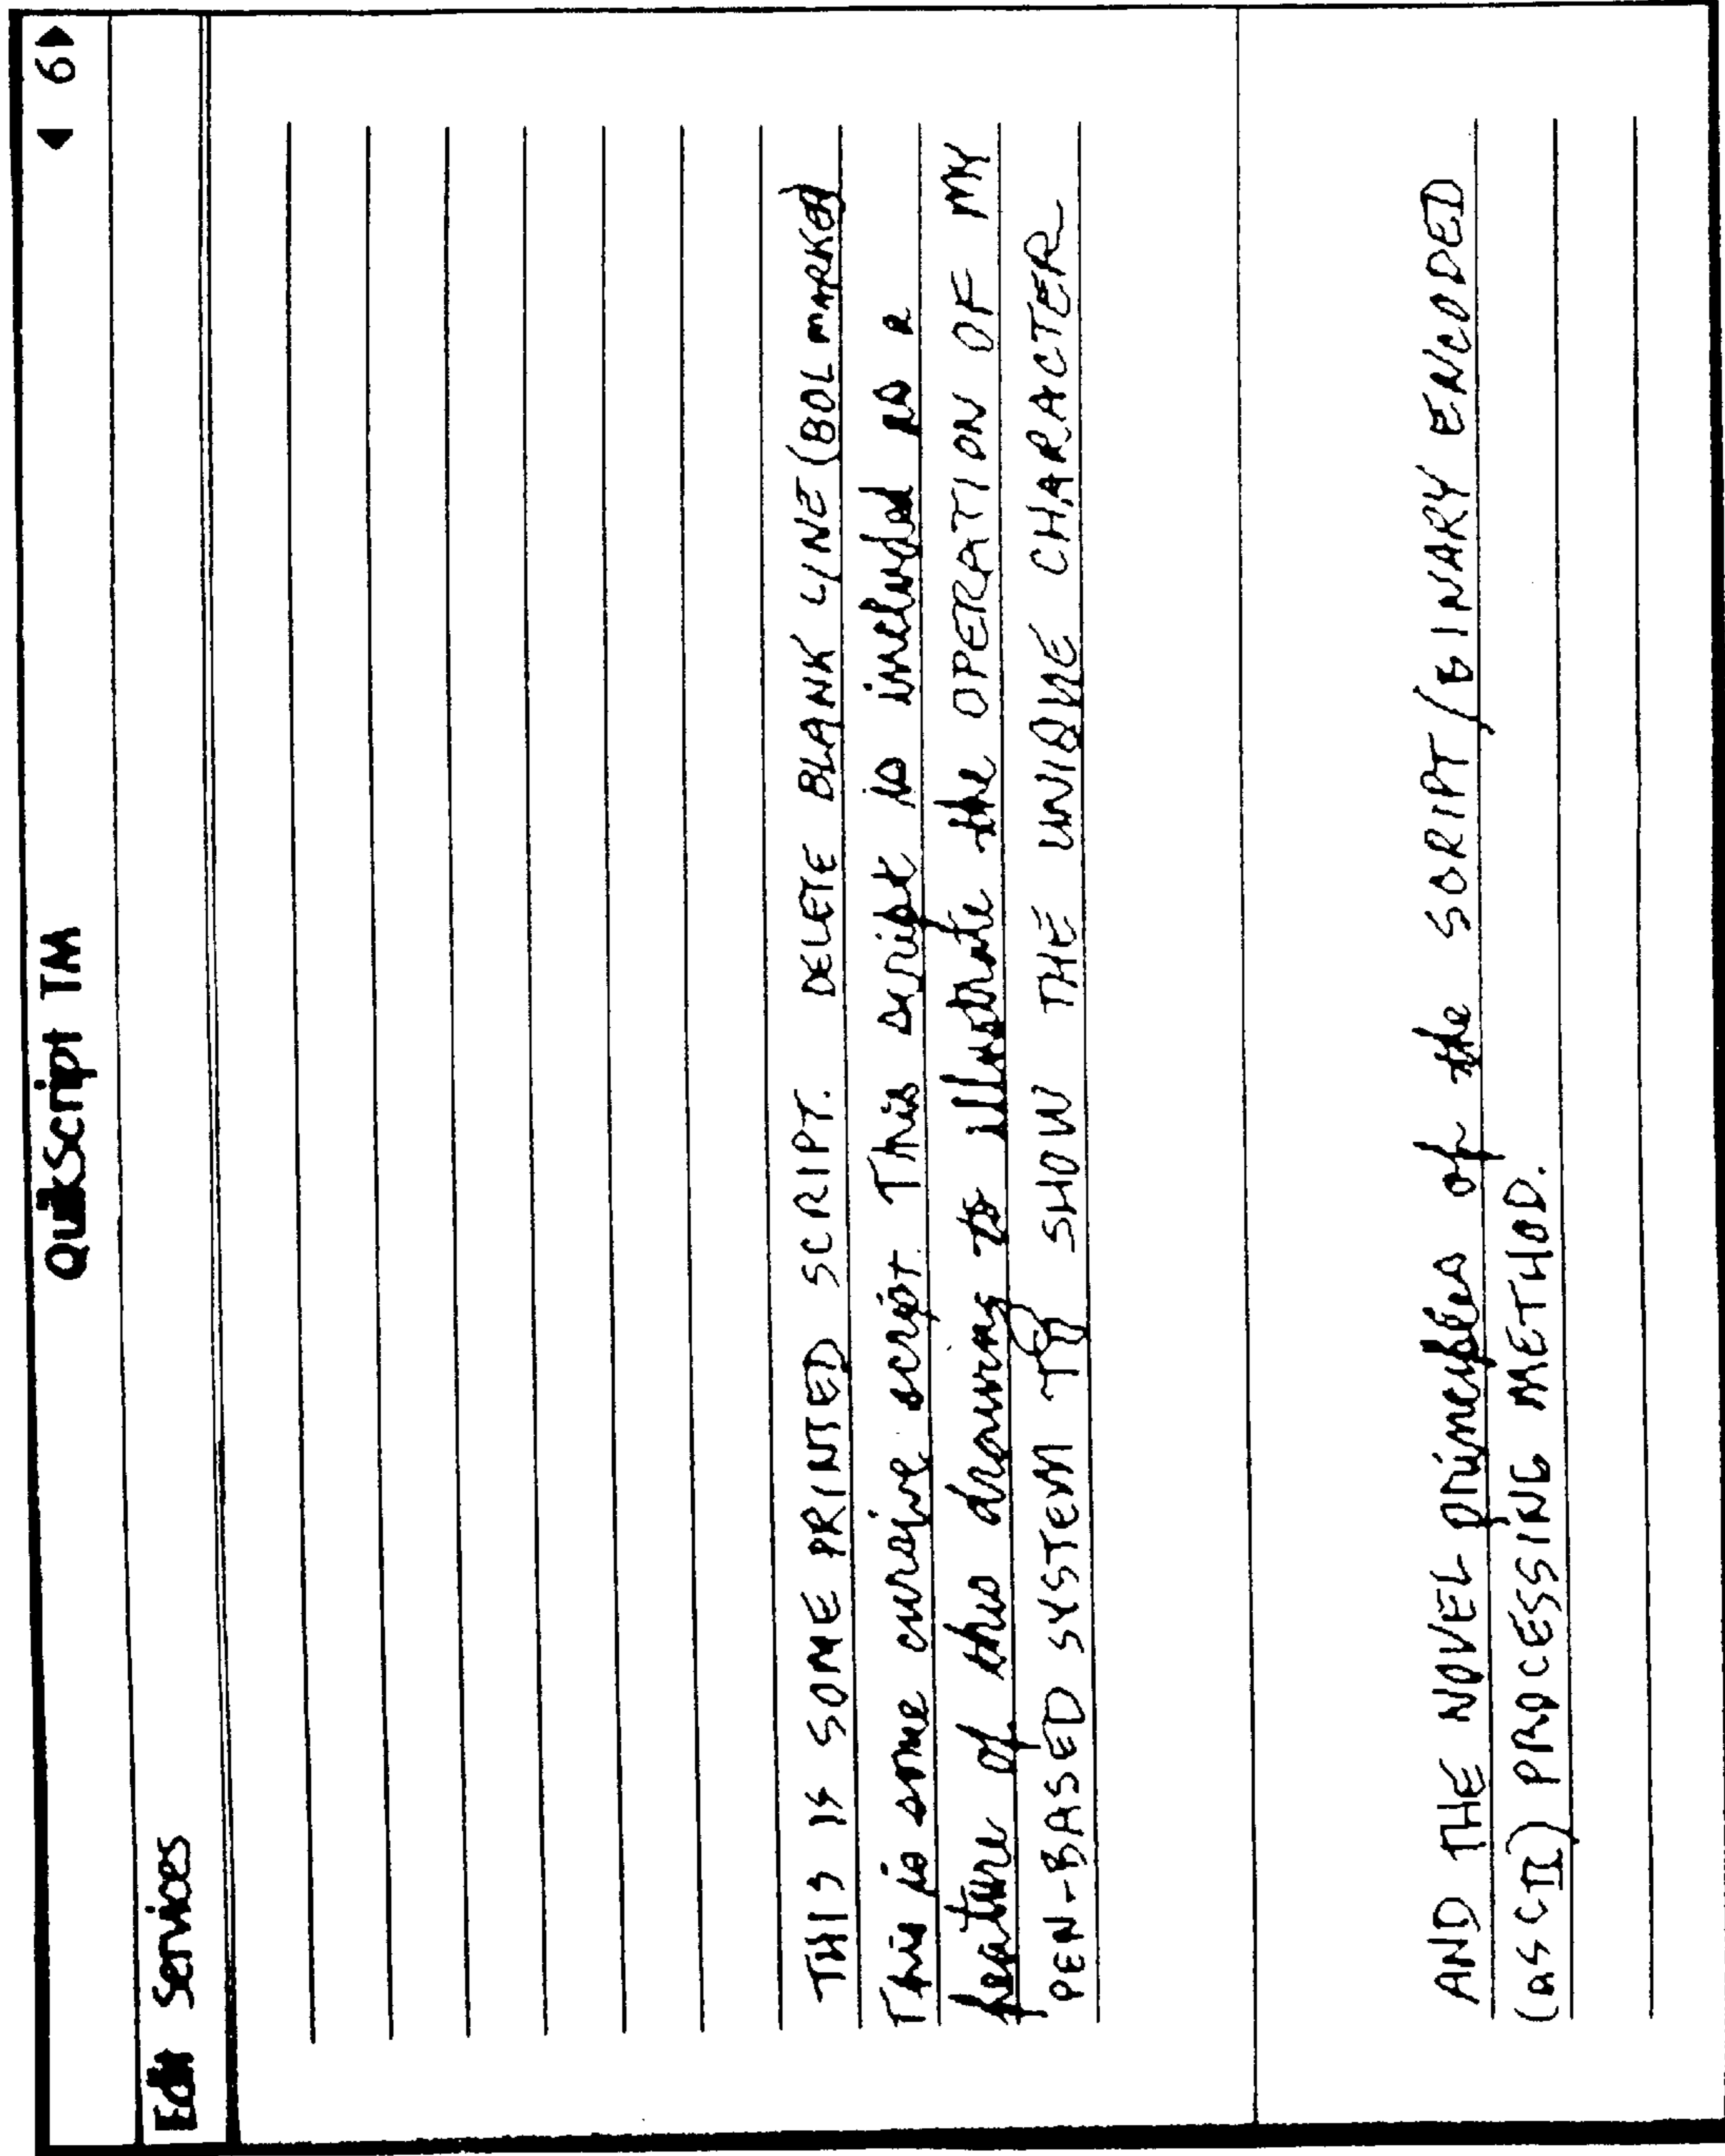 QuikScript TM
◀ 6 ▶
Edit Services
THIS IS SOME PRINTED SCRIPT. DELETE BLANK LINE (BOL MARKER)
This is some cursive script. This script is included as a
feature of this drawing to illustrate the OPERATION OF MY
PEN-BASED SYSTEM TO SHOW THE UNIQUE CHARACTER
AND THE NOVEL principles of the SCRIPT/BINARY ENCODED
(ASCII) PROCESSING METHOD.